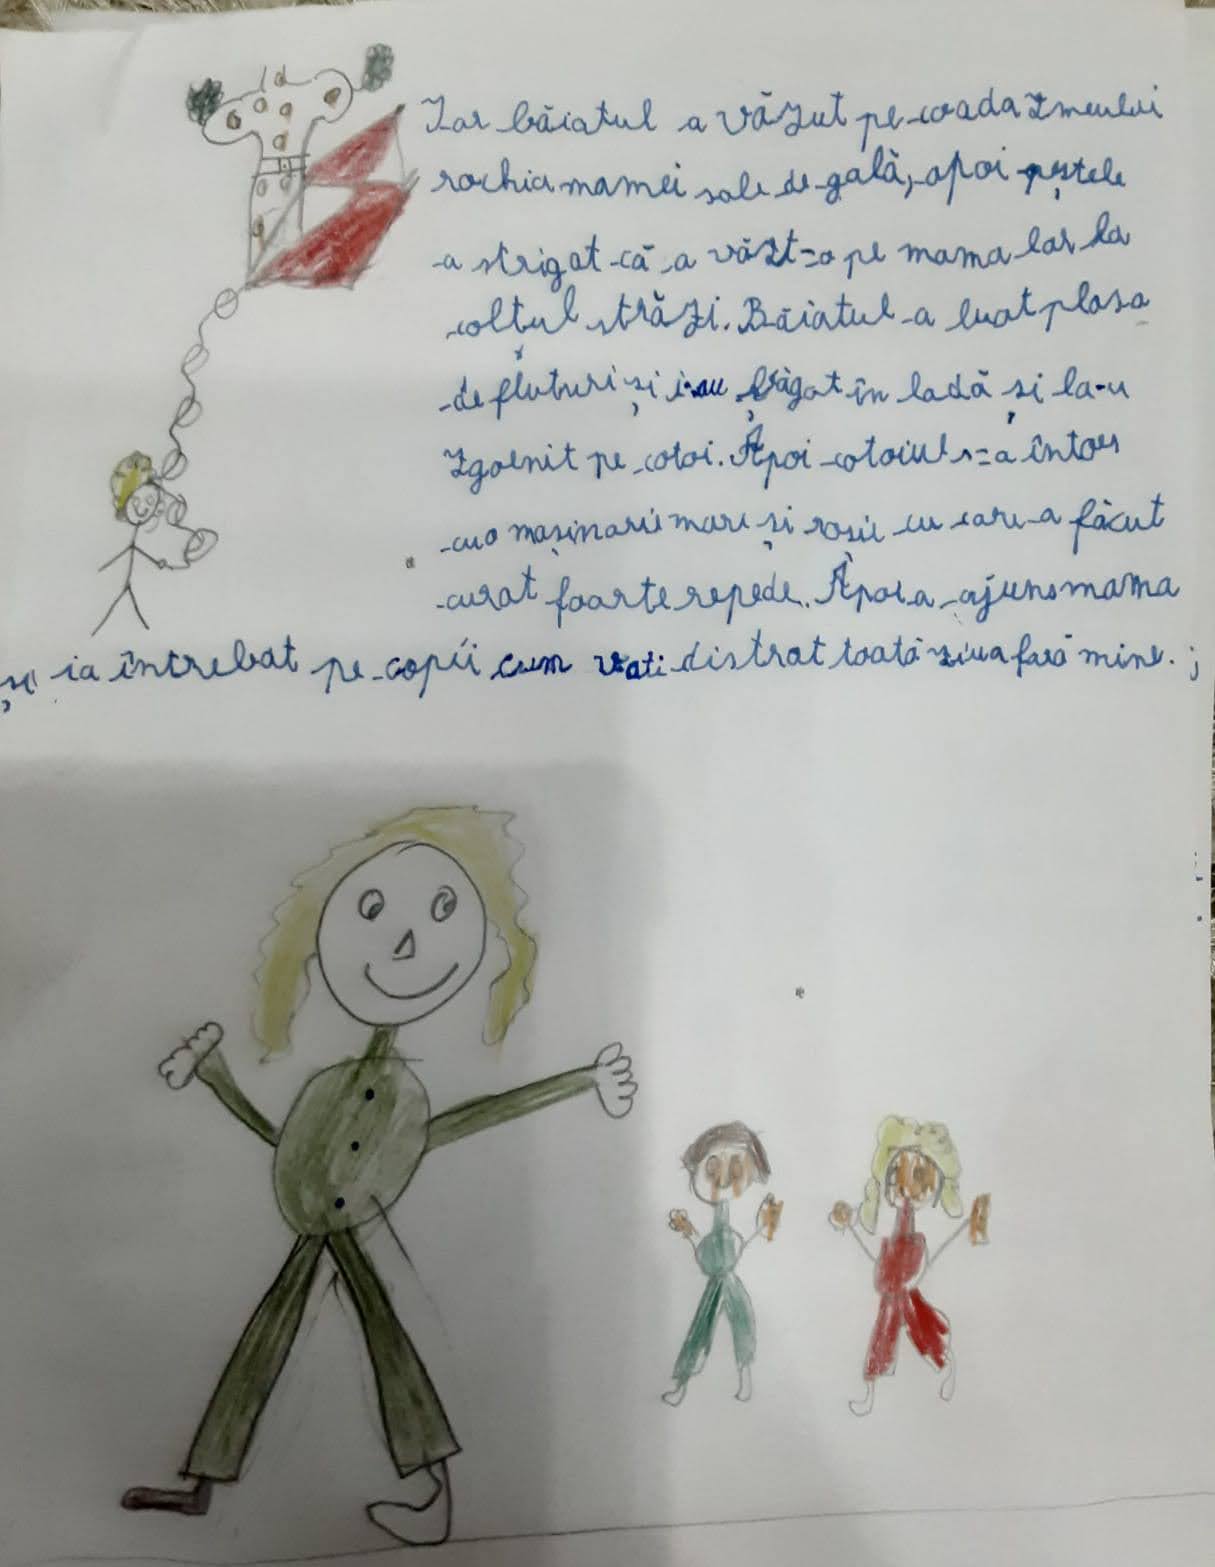 Iar băiatul a văzut pe coada zmeului
rochia mamei sale de gală, apoi peștele
a strigat că a văzt-o pe mama lar la
colțul străzi. Băiatul a luat plasa
de fluturi și i-au băgat în ladă și la-u
zgoenit pe cotoi. Apoi cotoiul s-a întors
cuo mașinarie mare și roșie cu care a făcut
curat foarte repede. Apoi a ajuns mama
și ia întrebat pe copii cum vati distrat toată ziua fară mine. ;